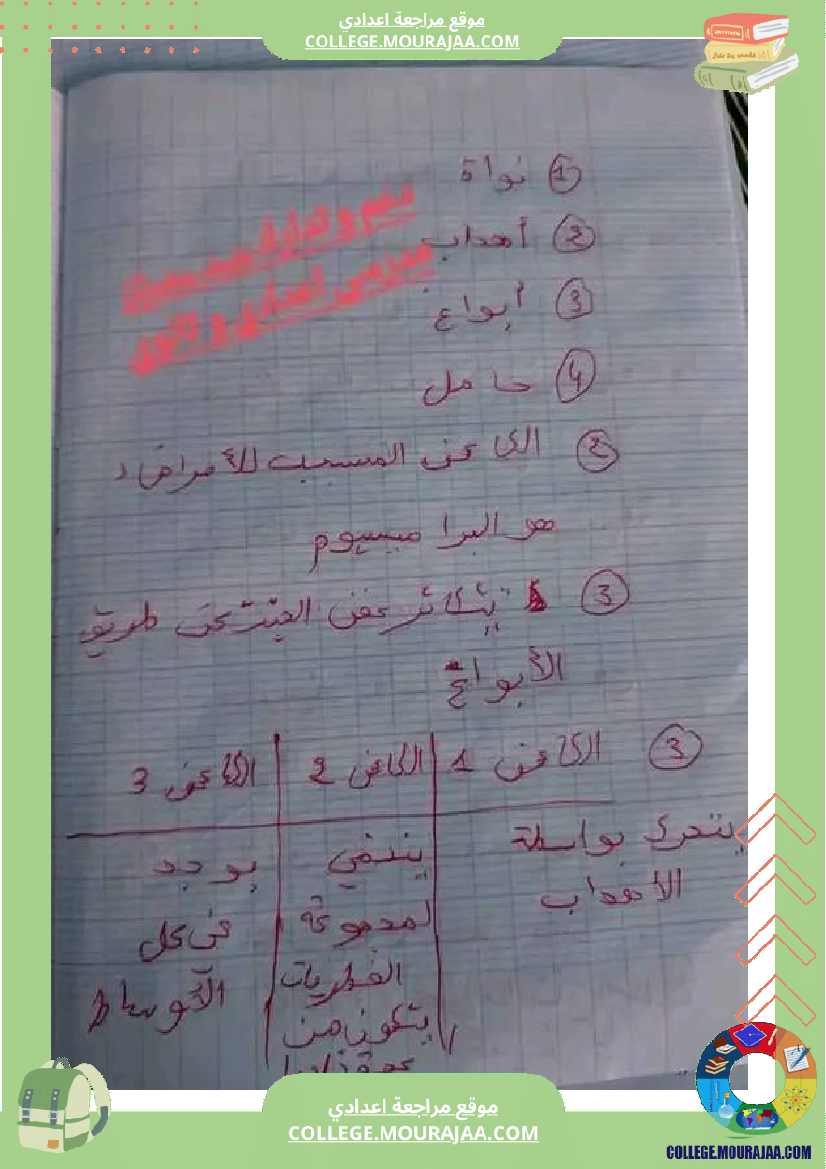 موقع مراجعة اعدادي
COLLEGE.MOURAJAA.COM
1 نواة
2 أهداب
3 أبواغ
4 حامل
2 الكائن المسبب للأمراض
هو البراميسيوم
3 يتكاثر عفن طريق
الأبواغ
3 الكائن 1 الكائن 2 الكائن 3
يتحرك بواسطة ينتمي يوجد
الأهداب لمجموعة في كل
الفطريات الأوساط
يتكون من
موقع مراجعة اعدادي
COLLEGE.MOURAJAA.COM
COLLEGE.MOURAJAA.COM